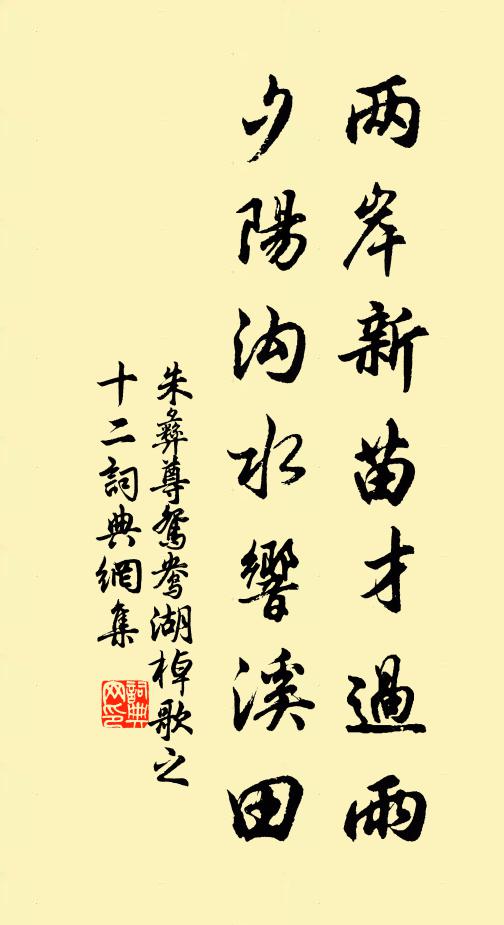 两岸新苗才過雨
夕陽沟水響溪田
朱彝尊鴛鴦湖棹歌之
十二詞典網集
詞典网印